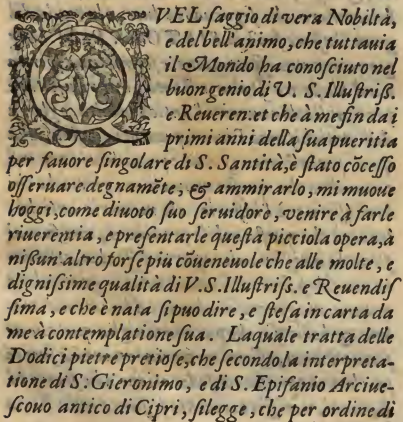 QVEL ſaggio di vera Nobiltà,
e del bell'animo, che tuttauia
il Mondo ha conoſciuto nel
buon genio di V. S. Illuſtriſſ.
e Reueren. et che à me fin da i
primi anni della ſua pueritia
per fauore ſingolare di S. Santità, è ſtato cōceſſo
oſſeruare degnamēte, & ammirarlo, mi muoue
hoggi, come diuoto ſuo ſeruidore, venire à farle
riuerentia, e preſentarle queſta picciola opera, à
niſſun'altro forſe piu cōueneuole che alle molte, e
digniſsime qualità di V. S. Illuſtriſs. e Reuendiſ
ſima, e che è nata ſi puo dire, e ſteſa in carta da
me à contemplatione ſua. Laquale tratta delle
Dodici pietre pretioſe, che ſecondo la interpreta-
tione di S. Gieronimo, e di S. Epifanio Arciue-
ſcouo antico di Cipri, ſi legge, che per ordine di